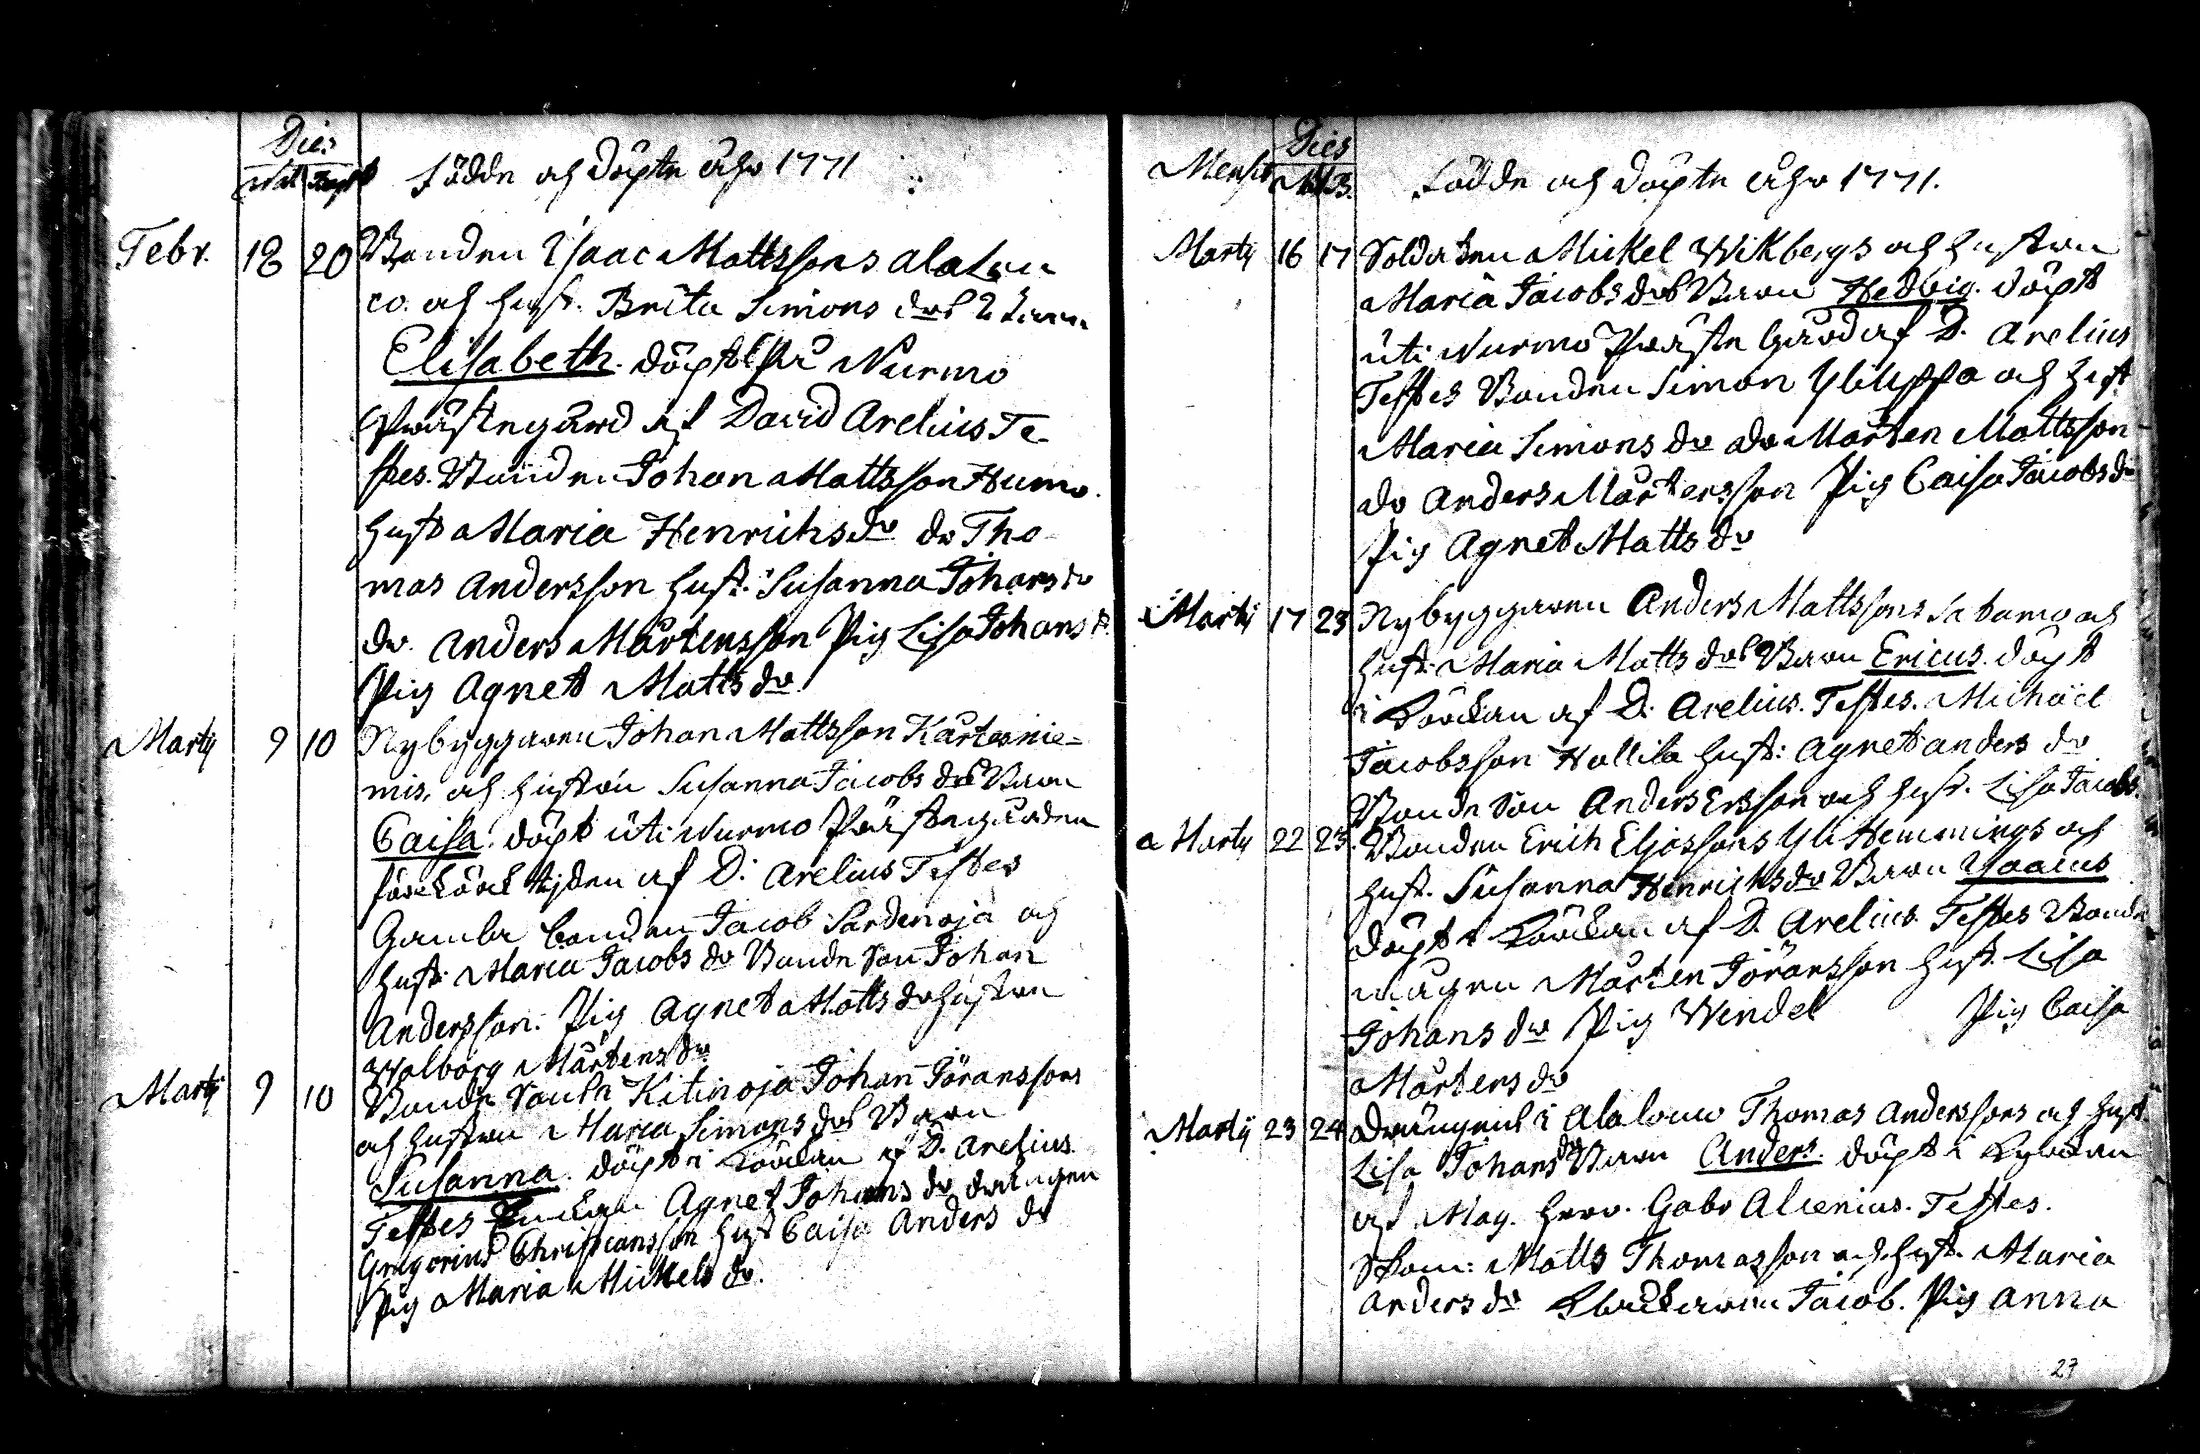 Dies
Nat Bapt
Födde och Döpte åhr 1771
Febr. 18 20 Bonden Isaac Mattssons Alalou
co. och hust. Brita Simons dors barn
Elisabeth. döpt på Nurmo
Prästegård af David Arelius Te-
stes. Bonden Johan Mattsson Humo.
Hust Maria Henrichs dr dr Tho-
mas Andersson hust. Susanna Johans dr
dr. Anders Mårtensson Pig Lisa Johans d.
Pig Agnet Matts dr
Martij 9 10 Nybyggaren Johan Mattsson Kartasnie-
mis, och hustrun Susanna Jacobs drs Barn
Caisa. döpt uti Nurmo Prästegården
före Körck tijden af D. Arelius Testes
Gamla bonden Jacob Sardenoja och
hust. Maria Jacobs dr Bonde Son Johan
Andersson. Pig Agnet Matts dr hustrun
Walborg Mårtens dr.
Martij 9 10 Bonde Son fr Kitinoja Johan Jöranssons
och hustrun Maria Simons drs Barn
Susanna. döpt i Körckan af D. Arelius
Testes Enckan Agnet Johans dr drängen
Gregorius Christiansson hust Caisa Anders dr
Pig Maria Mickels dr.
Mensis Dies
N. B. Födde och Döpte åhr 1771.
Martij 16 17 Soldaten Mickel Wikbergs och hustrun
Maria Jacobs drs Barn Hedvig. döpt
uti Nurmo Präste Gård af D. Arelius
Testes Bonden Simon Ylilyppa och hust
Maria Simons dr dr Mårten Mattsson
dr Anders Mårtensson Pig Caisa Jacobs dr
Pig Agnet Matts dr
Martij 17 23 Nybyggaren Anders Mattssons och
hust. Maria Matts drs Barn Ericus. döpt
i Körckan af D. Arelius. Testes. Michaël
Jacobsson Hallila hust: Agnet Anders dr
Bonde Son Anders Ersson och hust. Lisa Jacobs.
Martij 22 23. Bonden Erich Eljassons Yli Hemmings och
hust. Susanna Henrichs dr Barn Isaacus
döpt i Körckan af D. Arelius Testes Bonde
mågen Mårten Jöransson hust. Lisa
Johans dr Pig Wendel Pig Caisa
Mårtens dr
Martij 23 24 Drängens i Alalouco Thomas Anderssons och hust.
Lisa Johans drs Barn Anders. döpt i Kyrckan
af Mag. Herr. Gabr Alcenius. Testes.
Skom: Matts Thomasson och hust. Maria
Anders dr Klockaren Jacob. Pig Anna
27